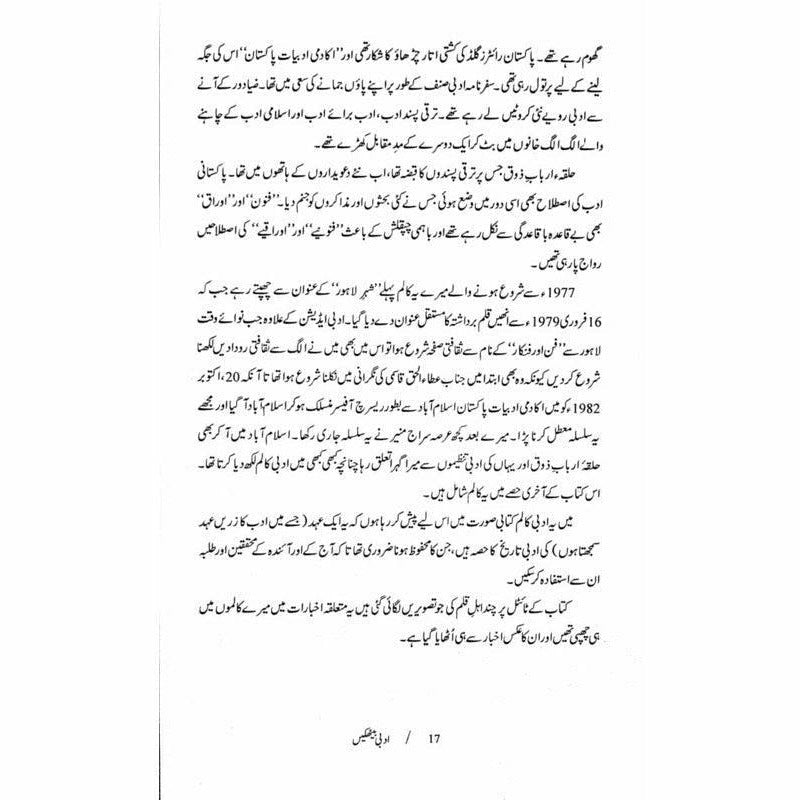 گھوم رہے تھے۔ پاکستان رائٹرز گلڈ کی کشتی اتار چڑھاؤ کا شکار تھی اور ’’اکادمی ادبیات پاکستان‘‘ اس کی جگہ
لینے کے لیے پر تول رہی تھی۔ سفرنامہ ادبی صنف کے طور پر اپنے پاؤں جمانے کی سعی میں تھا۔ ضیا دور کے آنے
سے ادبی رویے نئی کروٹیں لے رہے تھے۔ ترقی پسند ادب، ادب برائے ادب اور اسلامی ادب کے چاہنے
والے الگ الگ خانوں میں بٹ کر ایک دوسرے کے مدِ مقابل کھڑے تھے۔
حلقہء اربابِ ذوق جس پر ترقی پسندوں کا قبضہ تھا، اب نئے دعویداروں کے ہاتھوں میں تھا۔ پاکستانی
ادب کی اصطلاح بھی اسی دور میں وضع ہوئی جس نے کئی بحثوں اور مذاکروں کو جنم دیا۔ ’’فنون‘‘ اور ’’اوراق‘‘
بھی بے قاعدہ باقاعدگی سے نکل رہے تھے اور باہمی چپقلش کے باعث ’’فنونیے‘‘ اور ’’اوراقیے‘‘ کی اصطلاحیں
رواج پا رہی تھیں۔
1977ء سے شروع ہونے والے میرے یہ کالم پہلے ’’شہرِ لاہور‘‘ کے عنوان سے چھپتے رہے جب کہ
16 فروری 1979ء سے انھیں قلم برداشتہ کا مستقل عنوان دے دیا گیا۔ ادبی ایڈیشن کے علاوہ جب نوائے وقت
لاہور سے ’’فن اور فنکار‘‘ کے نام سے ثقافتی صفحہ شروع ہوا تو اس میں بھی میں نے الگ سے ثقافتی رودادیں لکھنا
شروع کر دیں کیونکہ وہ بھی ابتدا میں جناب عطاء الحق قاسمی کی نگرانی میں نکلنا شروع ہوا تھا تا آنکہ 20، اکتوبر
1982ء کو میں اکادمی ادبیات پاکستان اسلام آباد سے بطور ریسرچ آفیسر منسلک ہو کر اسلام آباد آ گیا اور مجھے
یہ سلسلہ معطل کرنا پڑا۔ میرے بعد کچھ عرصہ سراج منیر نے یہ سلسلہ جاری رکھا۔ اسلام آباد میں آ کر بھی
حلقۂ اربابِ ذوق اور یہاں کی ادبی تنظیموں سے میرا گہرا تعلق رہا چنانچہ کبھی کبھی میں ادبی کالم لکھ دیا کرتا تھا۔
اس کتاب کے آخری حصے میں یہ کالم شامل ہیں۔
میں یہ ادبی کالم کتابی صورت میں اس لیے پیش کر رہا ہوں کہ یہ ایک عہد (جسے میں ادب کا زریں عہد
سمجھتا ہوں) کی ادبی تاریخ کا حصہ ہیں، جن کا محفوظ ہونا ضروری تھا تا کہ آج کے اور آئندہ کے محققین اور طلبہ
ان سے استفادہ کر سکیں۔
کتاب کے ٹائٹل پر چند اہلِ قلم کی جو تصویریں لگائی گئی ہیں یہ متعلقہ اخبارات میں میرے کالموں میں
ہی چھپی تھیں اور ان کا عکس اخبار سے ہی اُٹھایا گیا ہے۔
17 / ادبی بیٹھکیں